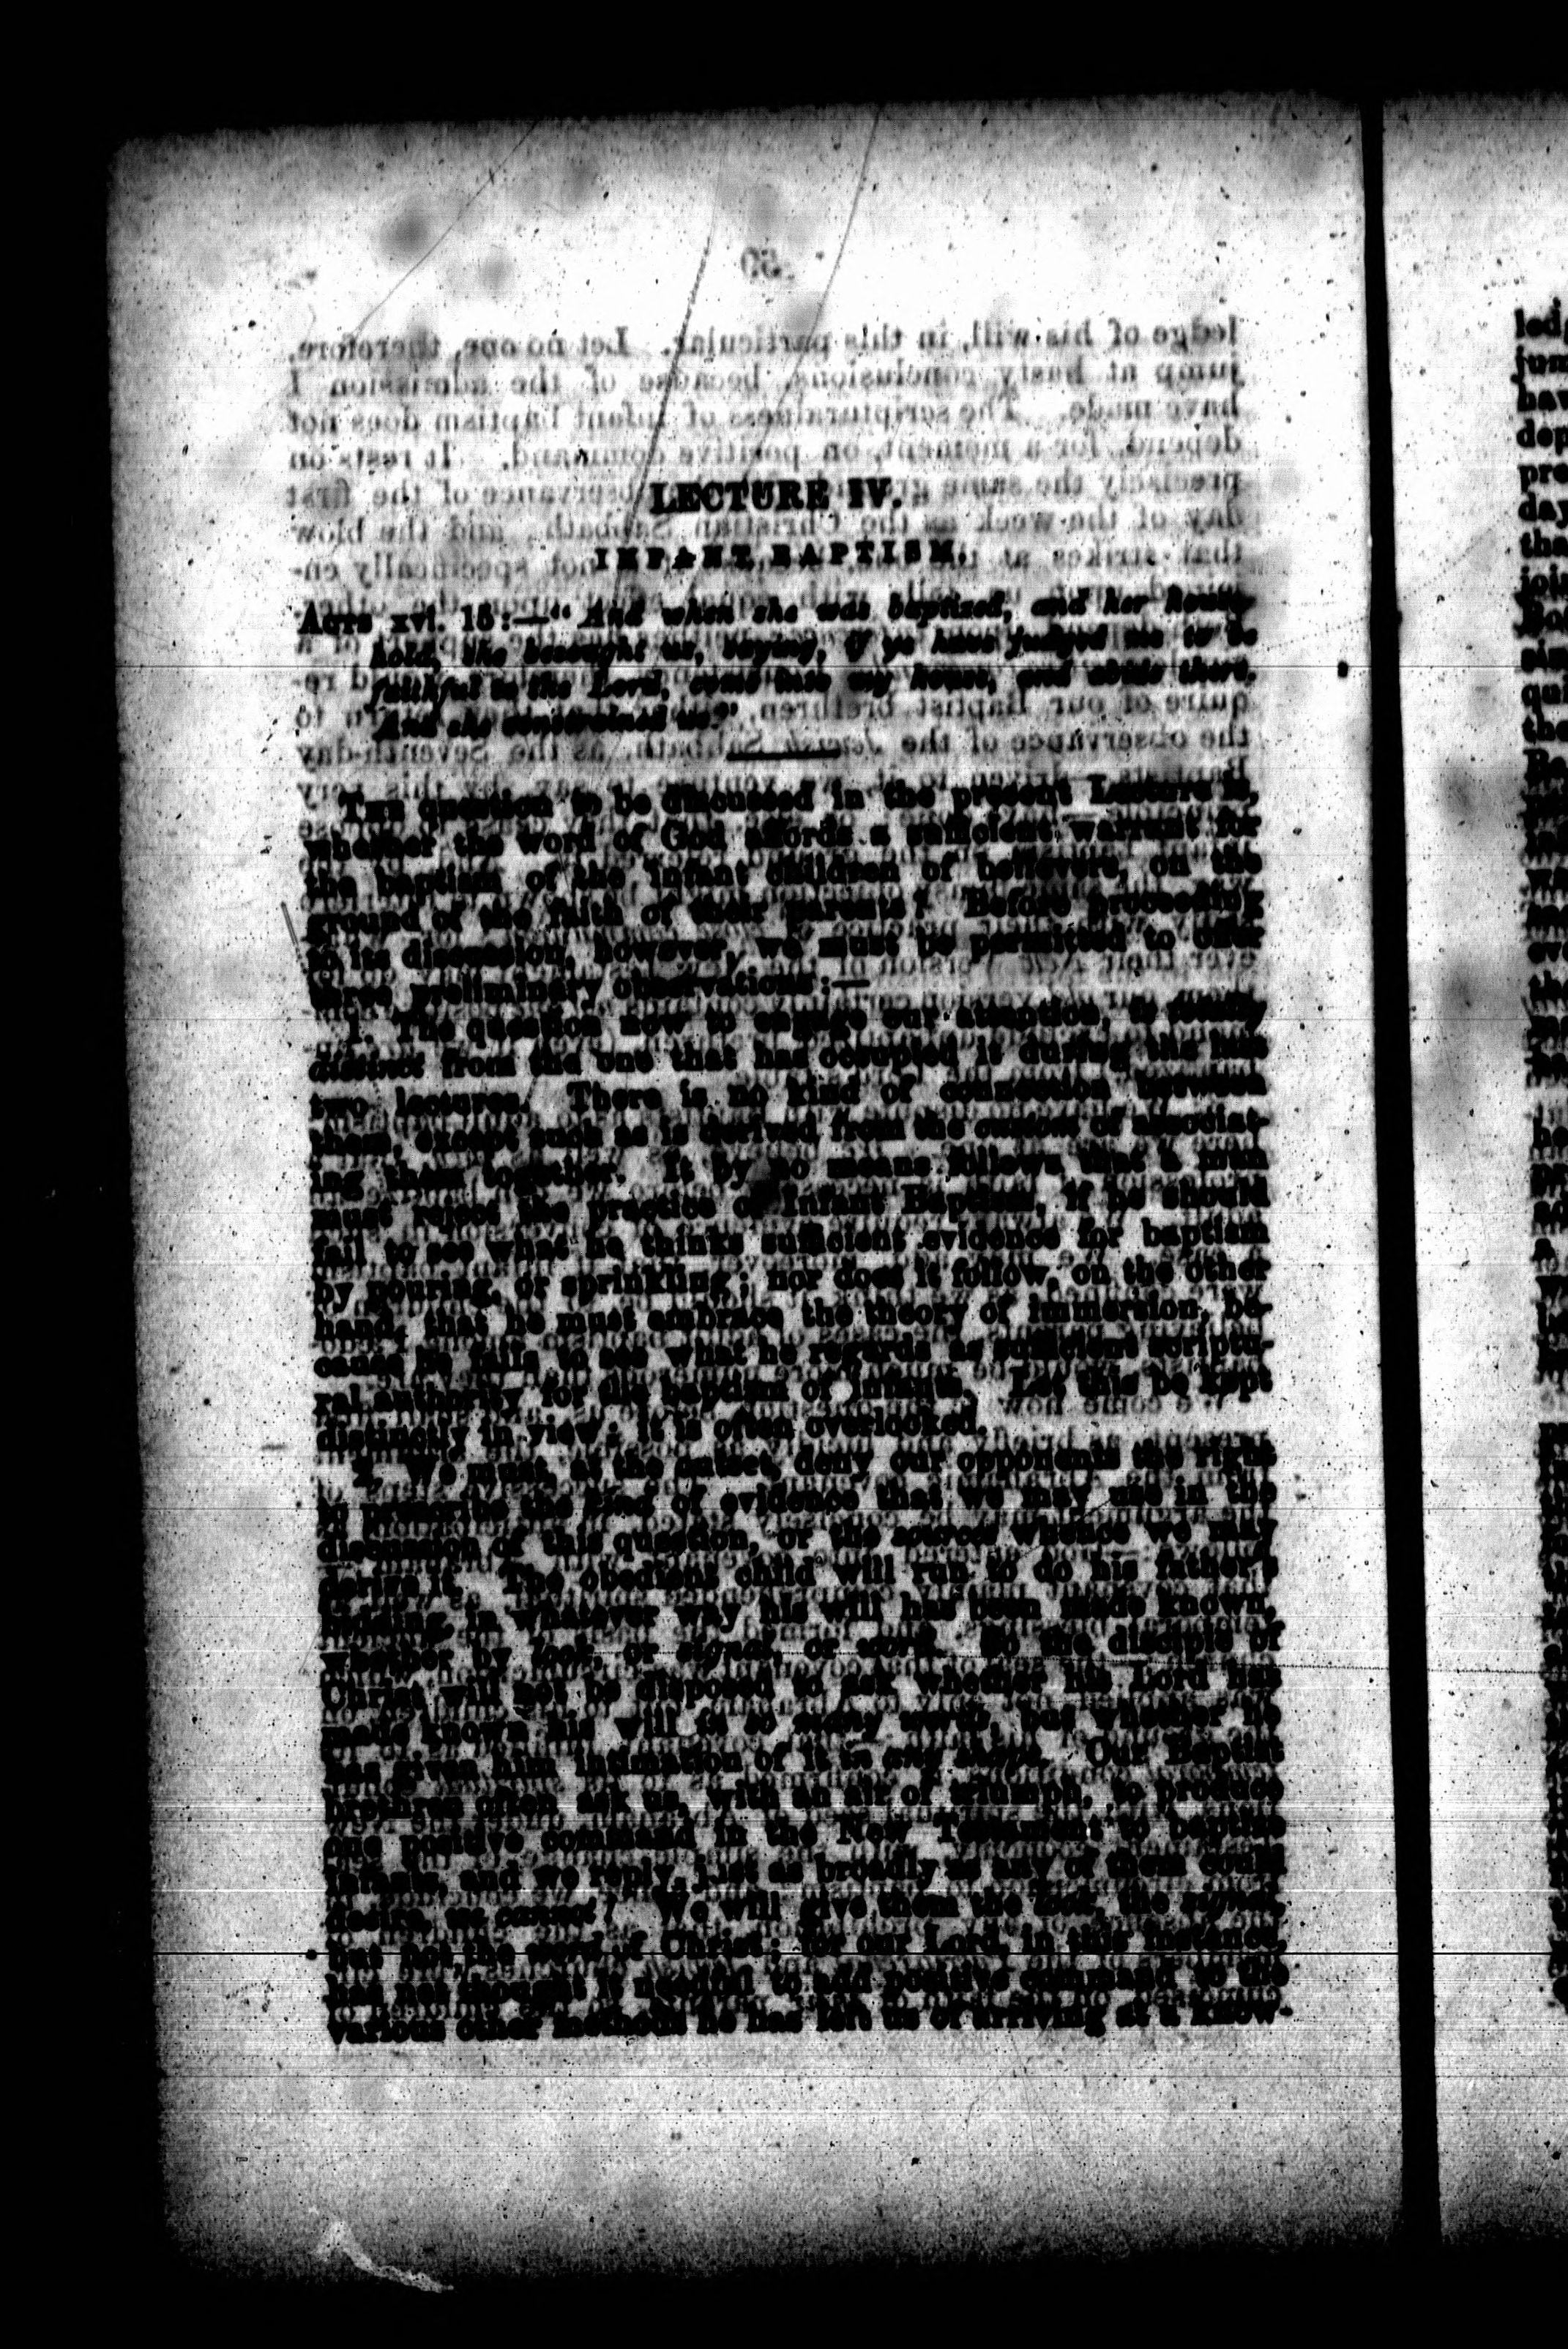 LECTURE IV.
INFANT BAPTISM.
Acts xvi. 15:—“And when she was baptized, and her house-
hold, she besought us, saying, if ye have judged me to be
faithful to the Lord, come into my house, and abide there.
And she constrained us.”
The question to be discussed in the present Lecture is,
whether the word of God affords a sufficient warrant for
the baptism of the infant children of believers, on the
ground of the faith of their parents? Before proceeding
to its discussion, however, we must be permitted to offer
three preliminary observations:—
1. The question now to engage our attention, is
distinct from the one that has occupied it during the last
two lectures. There is no kind of connection between
them, except such as is derived from the custom of associat-
ing them together. It by no means follows that a man
must reject the practice of Infant Baptism, if he should
fail to see what he thinks sufficient evidence for baptism
by pouring, or sprinkling; nor does it follow, on the other
hand, that he must embrace the theory of immersion, be-
cause he fails to see what he regards as sufficient scriptu-
ral authority for the baptism of infants. Let this be kept
distinctly in view: it is often overlooked.
2. We must, at the outset, deny our opponents the right
to prescribe the kind of evidence that we may use in the
discussion of this question, or the sources whence we may
derive it. The obedient child will run to do his father's
bidding, in whatever way his will has been made known,
whether by look, or signal, or word. So the disciple of
Christ will not be disposed to ask whether his Lord has
made known his will in so many words, but whether he
has given him intimation of it in any shape. Our Baptist
brethren often ask us, with an air of triumph, to produce
one positive command in the New Testament to baptize
infants, and we reply, just as broadly as any of them could
desire, we cannot! We will give them the look, the signal,
but not the word of Christ; for our Lord, in this instance,
has not thought it needful to add positive command to the
various other methods he has left us of arriving at a know-